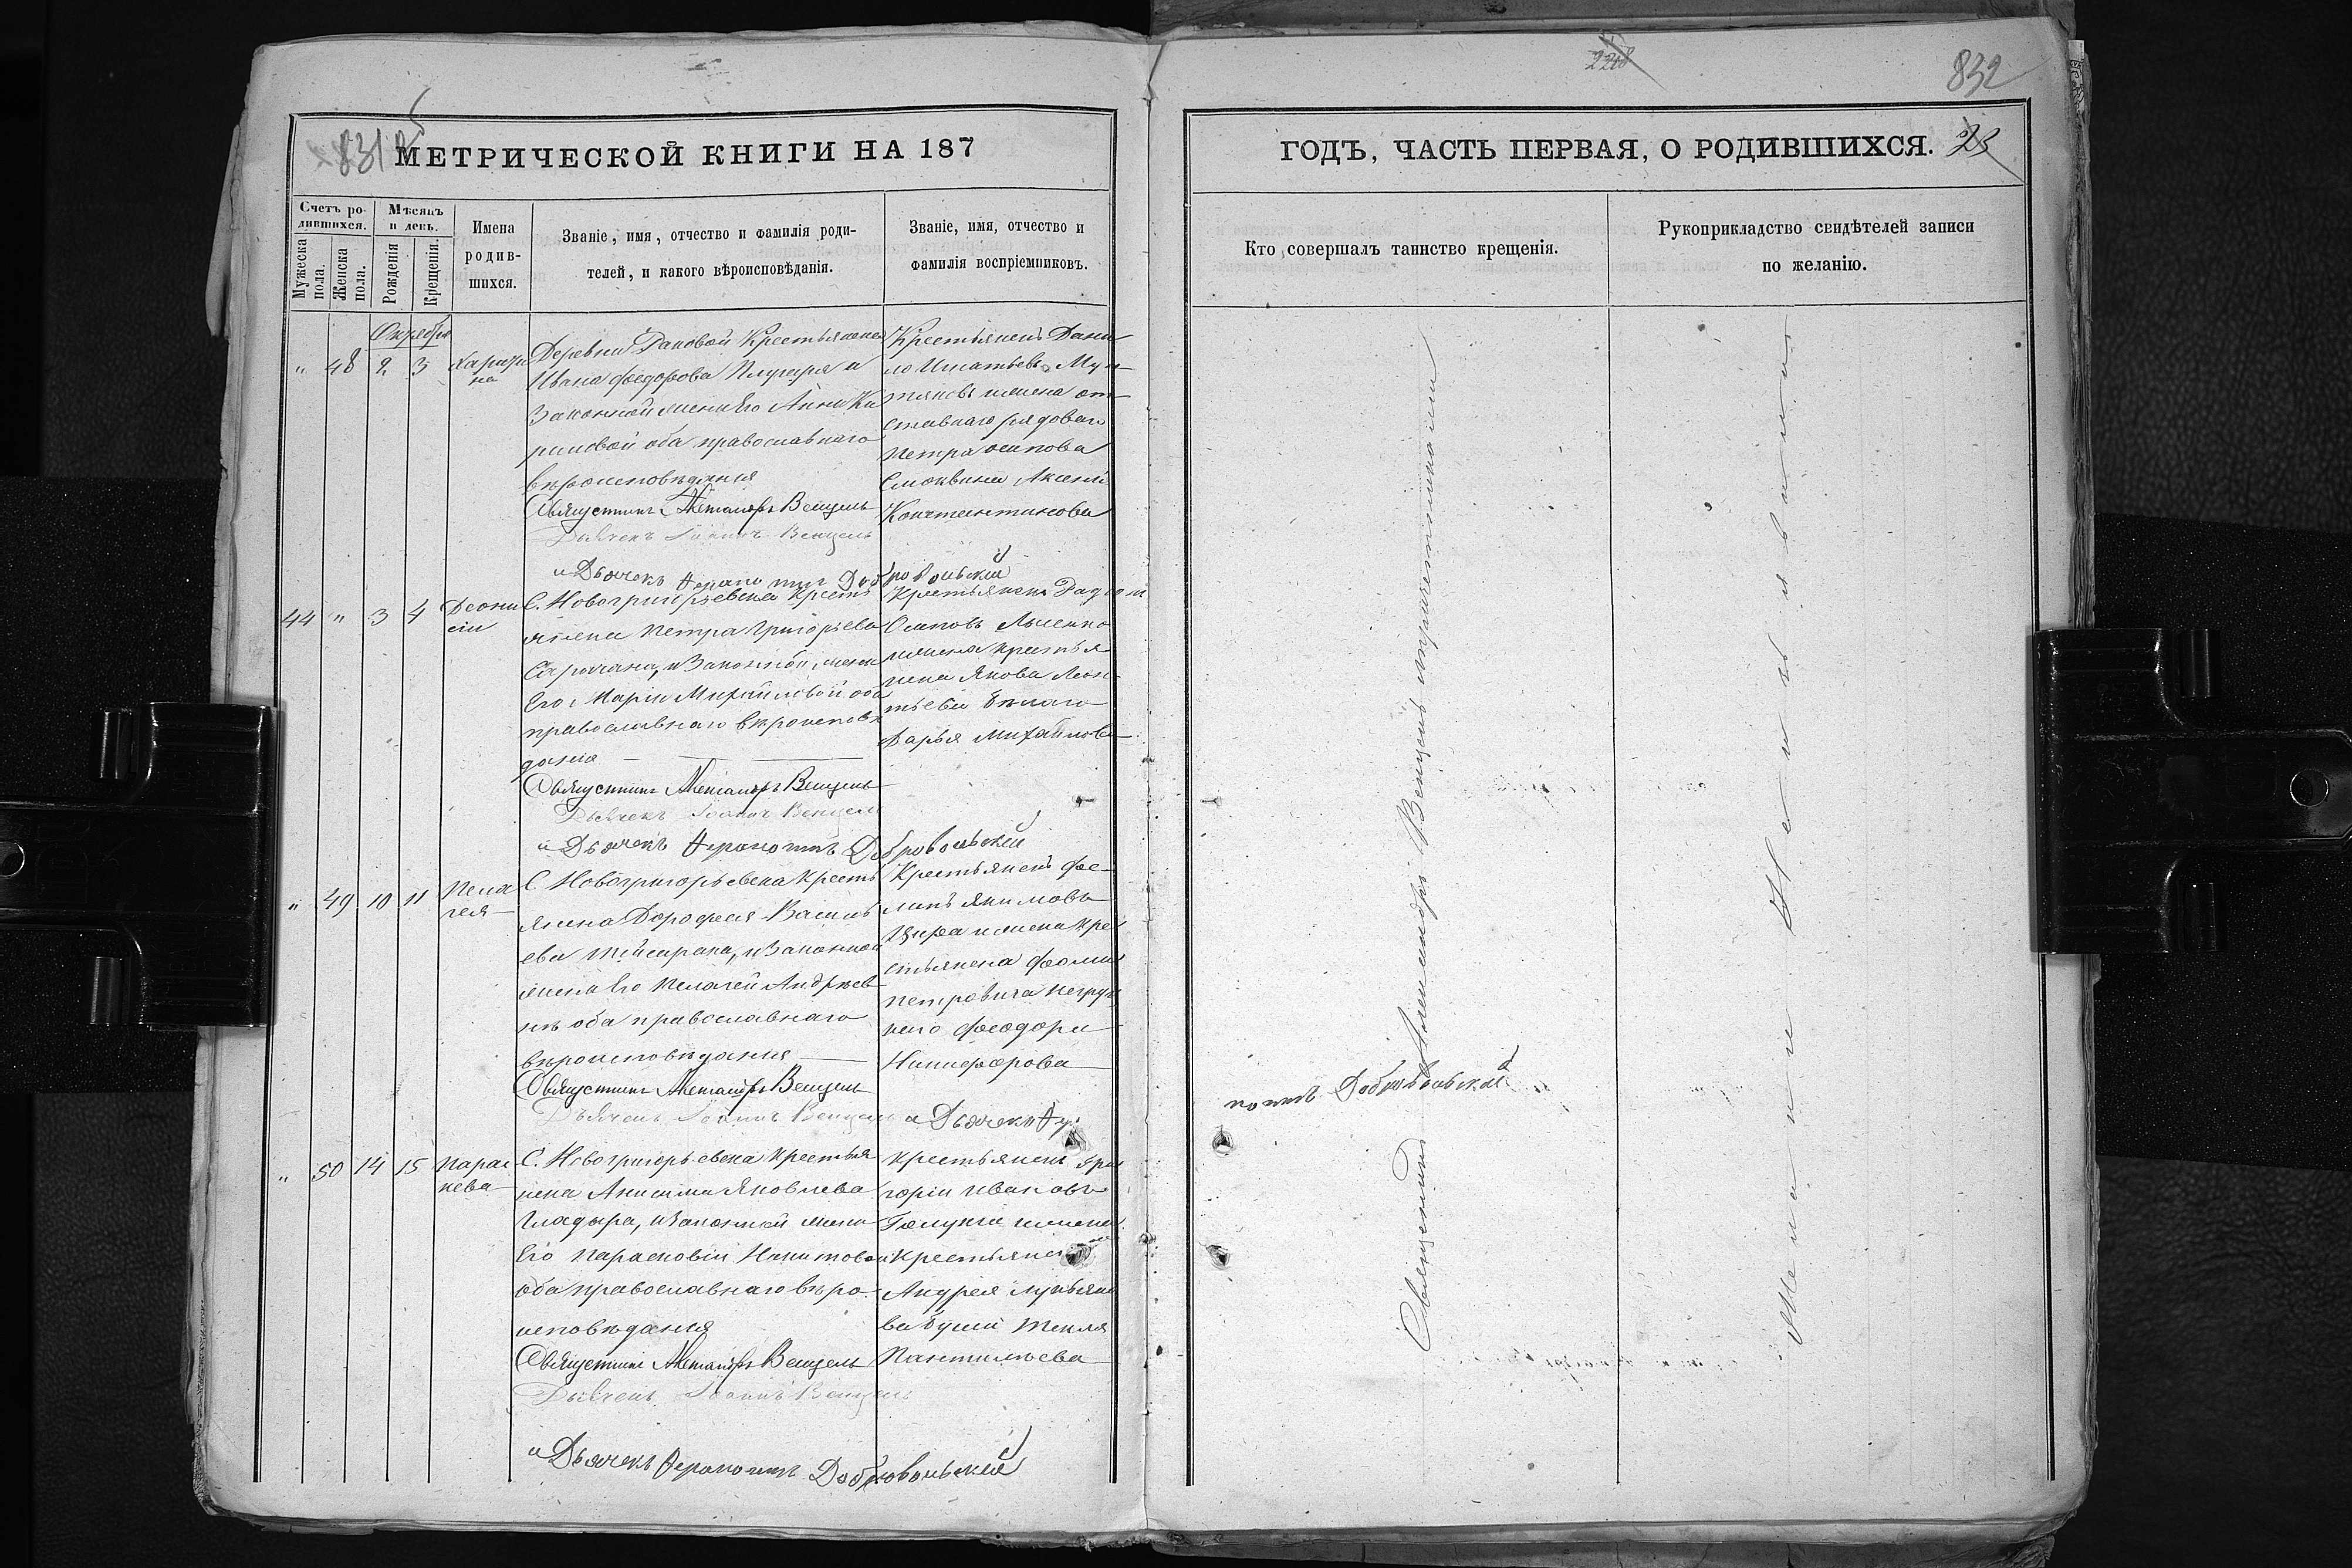 831
МЕТРИЧЕСКОЙ КНИГИ НА 187
Счетъ ро-
дившихся.
Мужеска пола.
Женска пола.
Мѣсяцъ
и день.
Рожденія
Крещенія.
Имена
родив-
шихся.
Званіе, имя, отчество и фамилія роди-
телей, и какого вѣроисповѣданія.
Званіе, имя, отчество и
фамилія воспріемниковъ.
Октября
" 48 2 3
Харити
на
Деревни Крестьянина
Ивана Федорова и
Законной жены Его Анны Ки
риловой оба православнаго
вѣроисповѣданія
Священникъ Александръ Венцель
Дьячекъ Іоаннъ Венцель
и Дьячекъ Ферапонтъ Добровольскій
Крестьянинъ Дани
ло Игнатьевъ Мун-
тянъ и жена от-
ставнаго рядоваго
Петра Осипова
Смоквина Аксенія
Константинова
44 " 3 4
Діони
сій
С. Новогригорьевска Кресть
янина Петра Григорьева
и Законной жены
Его Маріи Михайловой оба
православнаго вѣроисповѣ
данія
Священникъ Александръ Венцель
Дьячекъ Іоаннъ Венцель
и Дьячекъ Ферапонтъ Добровольскій
Крестьянинъ
Осиповъ Лысенко
и жена крестья
нина Якова Леон-
тьева Бѣлаго
Дарья Михайлова
" 49 10 11
Пела
гея
С Новогригорьевска Кресть
янина Дорофея Василь
ева и Законной
жены Его Пелагеи Андреев
ны оба православнаго
вѣроисповѣданія
Священникъ Александръ Венцель
Дьячекъ Іоаннъ Венцель и Дьячекъ Фера
Крестьянинъ Фи-
липъ Якимовъ
и жена кре
стьянина Фомы
Петровича
Феодора
Никифорова
" 50 14 15
Парас
кева
С. Новогригорьевска Крестья
нина Анисима Яковлева
Гладыря, и Законной жены
Его Параскевіи Никитовой
оба православнаго вѣро
исповѣданія
Священникъ Александръ Венцель
Дьячекъ Іоаннъ Венцель
и Дьячекъ Ферапонтъ Добровольскій
Крестьянинъ Гри
горій Ивановъ
и жена
Крестьянина
Андрея Лукьяно
ва Текля
Пантилѣева
2218
832
ГОДЪ, ЧАСТЬ ПЕРВАЯ, О РОДИВШИХСЯ. 23
Кто совершалъ таинство крещенія.
Рукоприкладство свидѣтелей записи
по желанію.
Священникъ Александръ Венцель съ причетниками
понтъ Добровольскій
Желаній не изъявили